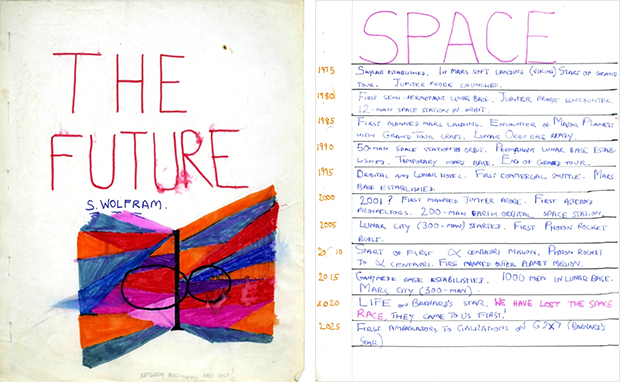 THE
FUTURE
S. WOLFRAM.
SPACE
1975
SKYLAB ESTABLISHED. 1ST MARS SOFT LANDING (VIKING) START OF GRAND
TOUR. JUPITER PROBE LAUNCHED.
1980
FIRST SEMI-PERMANENT LUNAR BASE. JUPITER PROBE ENCOUNTER.
12-MAN SPACE STATION IN ORBIT.
1985
FIRST MANNED MARS LANDING. ENCOUNTER OF MAJOR PLANETS
WITH GRAND TOUR CRAFT. LUNAR ORBIT BASE READY.
1990
50-MAN SPACE STATION IN ORBIT. PERMANENT LUNAR BASE ESTAB-
LISHED. TEMPORARY MARS BASE. END OF GRAND TOUR.
1995
ORBITAL AND LUNAR HOTEL. FIRST COMMERCIAL SHUTTLE. MARS
BASE ESTABLISHED.
2000
2001? FIRST MANNED JUPITER PROBE. FIRST ASTEROID
200-MAN EARTH ORBITAL SPACE STATION.
2005
LUNAR CITY (300-MAN) STARTED. FIRST PHOTON ROCKET
BUILT.
2010
START OF FIRST α CENTAURI MISSION. PHOTON ROCKET
TO α CENTAURI. FIRST MANNED OUTER PLANET MISSION.
2015
GANYMEDE BASE ESTABILISHED. 1000 MEN IN LUNAR BASE.
MARS CITY (300-MAN).
2020
LIFE ON BARNARD'S STAR. WE HAVE LOST THE SPACE
RACE, THEY CAME TO US FIRST!
2025
FIRST AMBASSADORS TO CIVILIZATIONS ON (BARNARD'S
STAR)